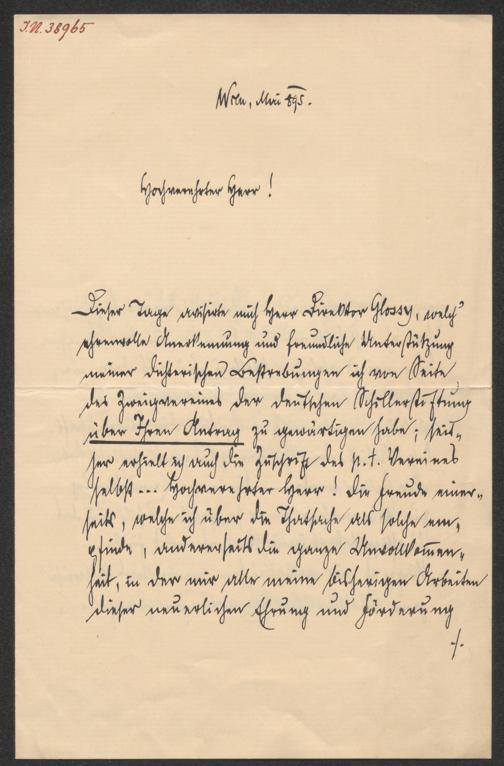 I.N. 38965
Wien, Mai 895.
Hochverehrter Herr!
Dieser Tage avisirte mich Herr Direktor Glossy, welch'
ehrenvolle Anerkennung und freundliche Unterstützung
meiner dichterischen Bestrebungen ich von Seite
des Zweigvereines der deutschen Schillerstiftung
über Ihren Antrag zu gewärtigen habe; seit-
her erhielt ich auch die Zuschrift des p. t. Vereines
selbst... Hochverehrter Herr! Die Freude einer-
seits, welche ich über die Thatsache als solche em-
pfinde, andererseits die ganze Unvollkom̄en-
heit, in der mir alle meine bisherigen Arbeiten
dieser neuerlichen Ehrung und Förderung
./.